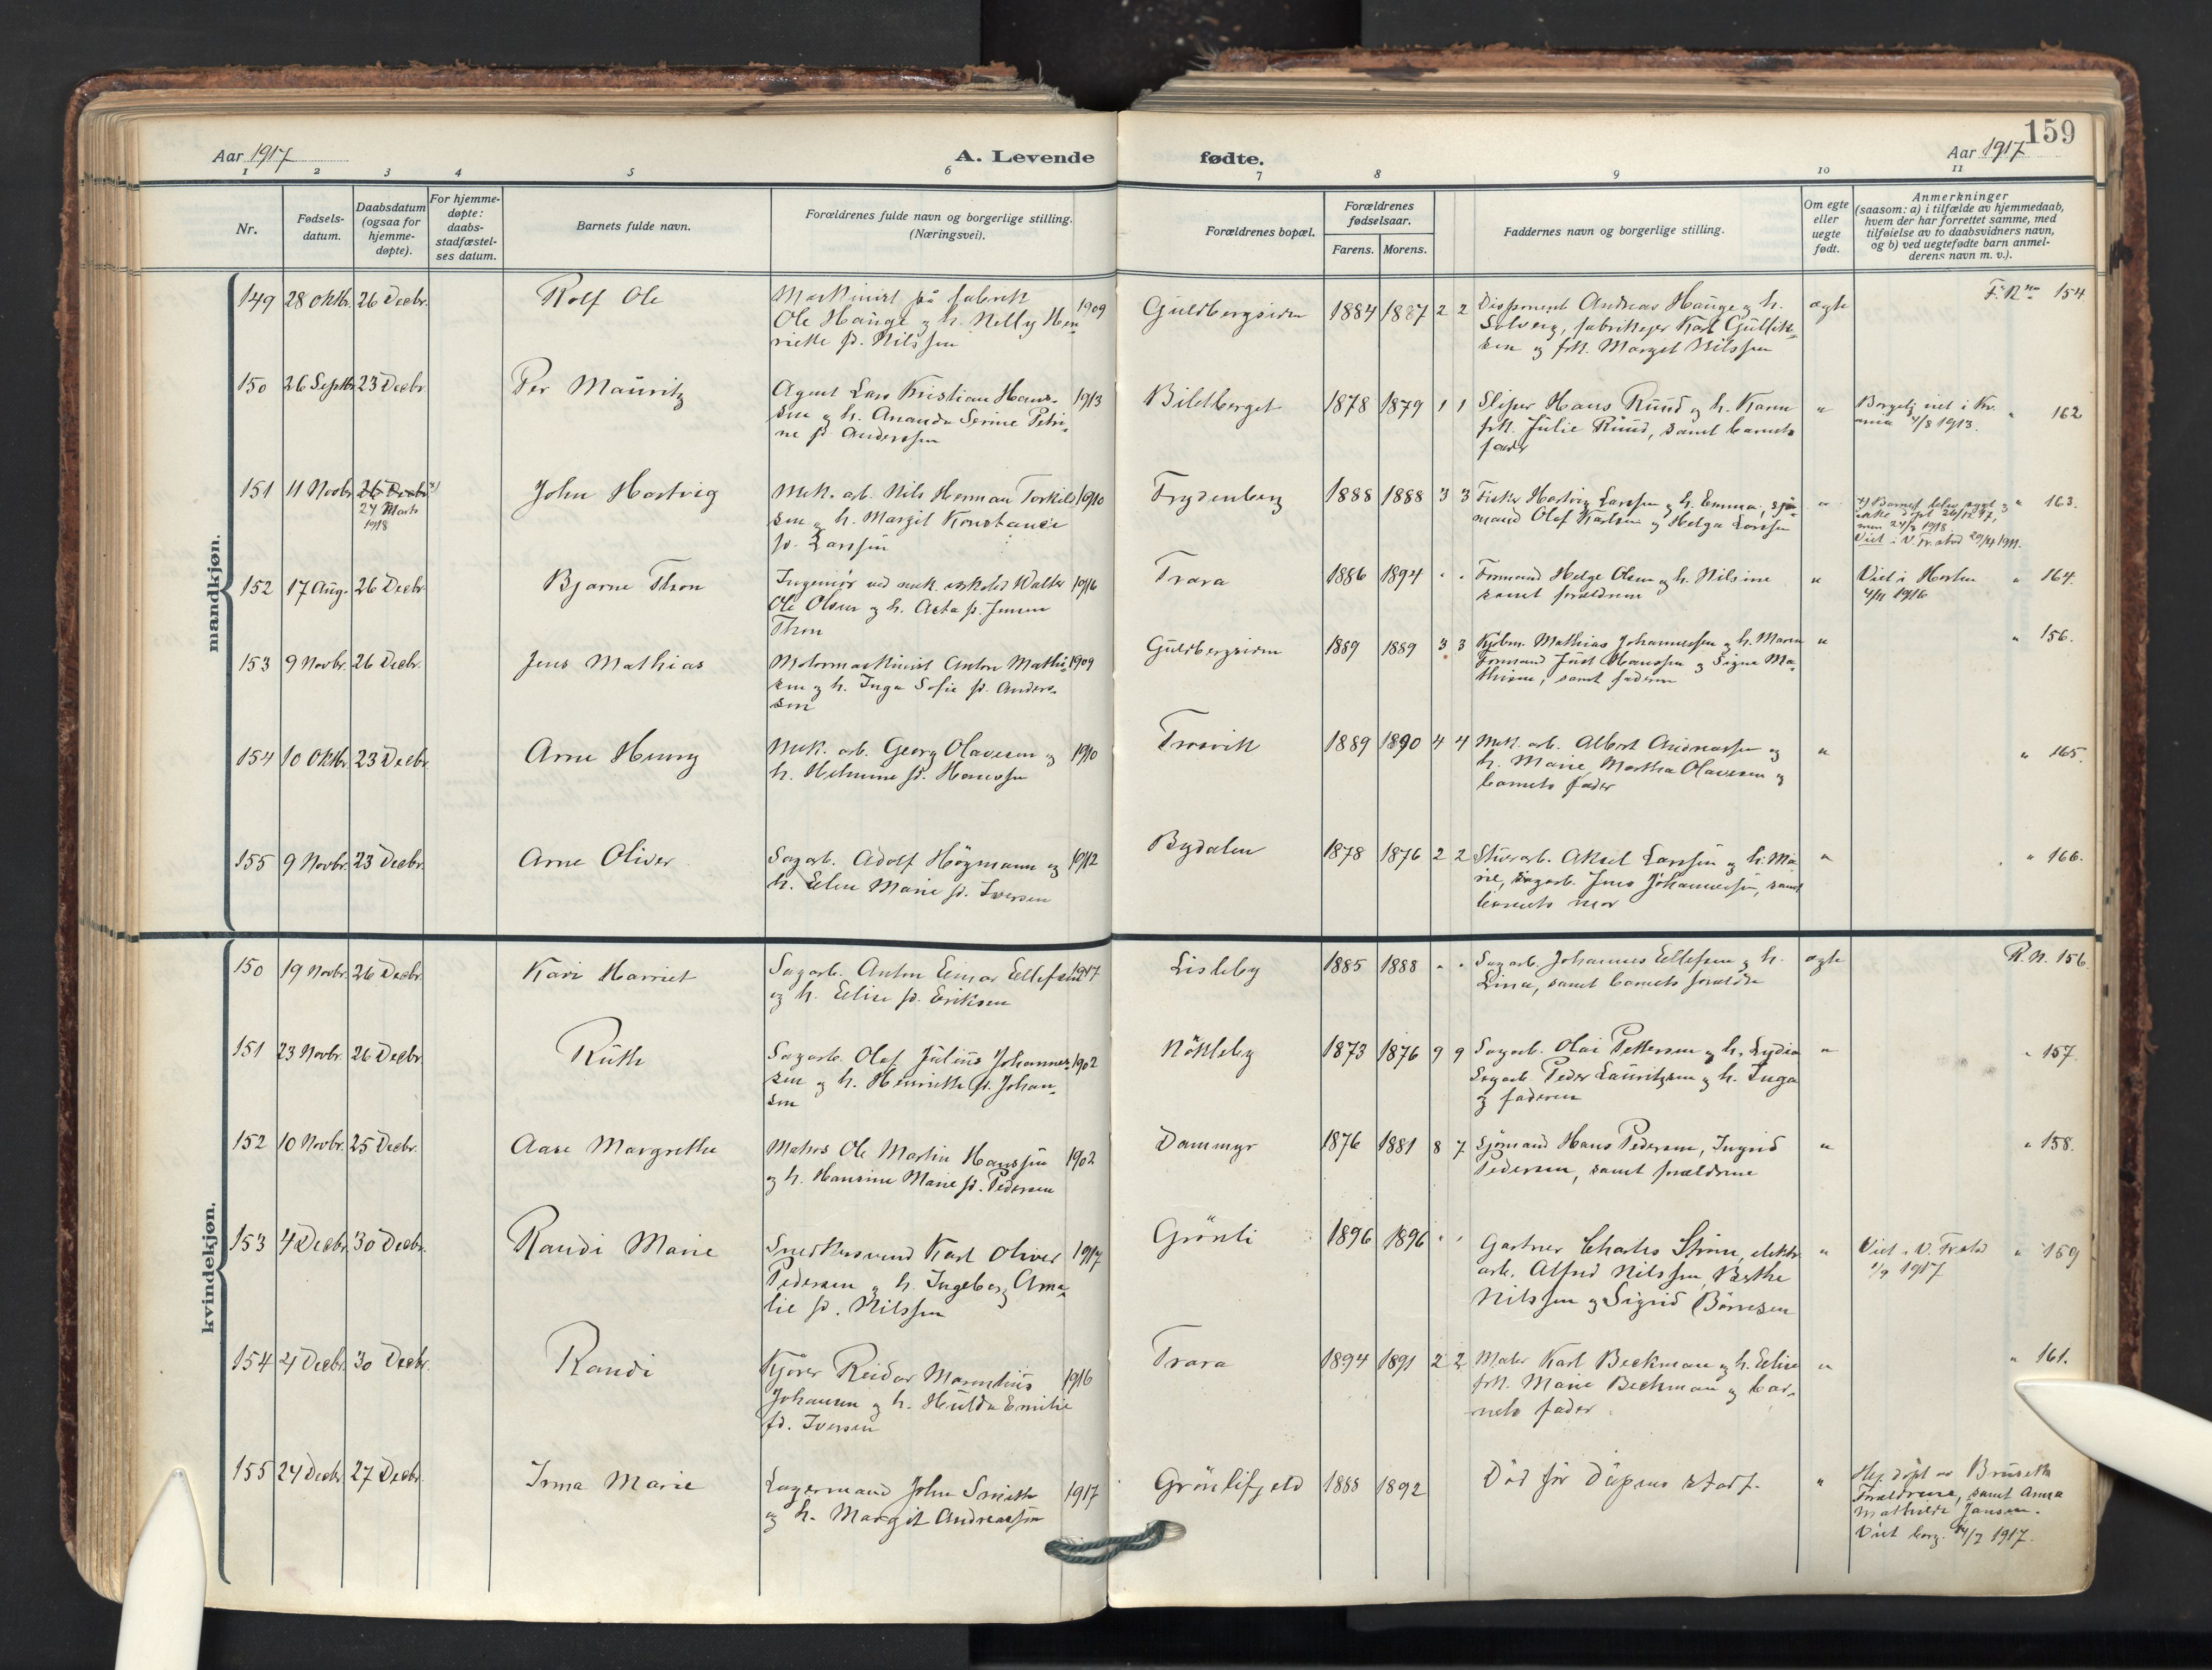 159
Aar 1917
A. Levende
fødte.
Aar 1917
1 2 3 4 5 6 7 8 9 10 11
Nr.
Fødsels-
datum.
Daabsdatum
(ogsaa for
hjemme-
døpte).
For hjemme-
døpte:
daabs-
stadfæstel-
ses datum.
Barnets fulde navn.
Forældrenes fulde navn og borgerlige stilling.
(Næringsvei).
Forældrenes bopæl.
Forældrenes
fødselsaar.
Farens. Morens.
Faddernes navn og borgerlige stilling.
Om egte
eller
uegte
født.
Anmerkninger
(saasom: a) i tilfælde av hjemmedaab,
hvem der har forrettet samme, med
tilføielse av to daabsvidners navn,
og b) ved uegtefødte barn anmel-
derens navn m. v.).
mandkjøn.
149 28 Oktbr. 26 Decbr. Rolf Ole
Maskinist på fabrik
Ole Hauge og h. Nelly Hen-
riette fd. Nilssen
1909
Guldbergsiden 1884 1887 2 2
Disponent Andreas Hauge og h.
Solveig, fabrikeier Karl Gullik-
sen og frk. Margit Nilssen
ægte
154
150 26 Septbr. 23 Decbr. Per Mauritz
Agent Lars Kristian Hans-
sen og h. Ananda Serine Petri-
ne fd. Anderssen
1913
Bildberget 1878 1879 1 1
Sliper Hans Ruud og h. Karen
frk. Julie Ruud, samt barnets
fader
"
Borgerlig viet i Kr.
ania 4/8 1913.
" 162
151 11 Novbr. 26 Decbr. x)
24 Marts
1918
John Hartvig
Mek. arb. Nils Herman Torkild-
sen og h. Margit Konstance
fd. Larssen
1910
Frydenberg 1888 1888 3 3
Fisker Hartvig Larssen og h. Emma, sjø-
mand Olaf Karlsen og Helga Larssen
"
x) Barnet blev sygt og
ikke døpt 26/12 17,
men 24/3 1918
Viet i V. Fr.stad 29/4 1911.
" 163.
152 17 Aug. 26 Decbr. Bjarne Thon
Ingeniør ved mek. verksted Walter
Ole Olsen og h. Asta fd. Jensen
Thon
1916
Trara 1886 1894 " "
Formand Helge Olsen og h. Nilsine
samt forældrene
"
Viet i Horten
4/11 1916
" 164.
153 9 Novbr. 26 Decbr. Jens Mathias
Motormaskinist Anton Mathi-
sen og h. Inga Sofie fd. Anders-
sen
1909
Guldbergsiden 1889 1889 3 3
Kjøbm. Mathias Johannessen og h. Maren
Formand Just Hanssen og Signe Ma-
thisen, samt faderen
"
" 156.
154 10 Oktbr. 23 Decbr. Arne Henry
Mek. arb. Georg Olavesen og
h. Helmine fd. Hanssen
1910
Trosvik 1889 1890 4 4
Mek. arb. Albert Andreassen og
h. Marie, Martha Olavesen og
barnets fader
"
" 165.
155 9 Novbr. 23 Decbr. Arne Oliver
Sagarb. Adolf Høgmann og
h. Elen Marie fd. Iversen
1912
Bydalen 1878 1876 2 2
Stuerarb. Aksel Larssen og h. Ma-
rie, sagarb. Jens Johannessen, samt
barnets mor
"
" 166.
kvindekjøn.
150 19 Novbr. 26 Decbr. Kari Harriet
Sagarb. Anton Einar Ellefsen
og h. Elise fd. Eriksen
1917
Lisleby 1885 1888 " "
Sagarb. Johannes Ellefsen og h.
Lina, samt barnets forældre
ægte
R.N. 156
151 23 Novbr. 26 Decbr. Ruth
Sagarb. Olaf Julius Johannes-
sen og h. Henriette fd. Johan-
sen
1902
Nøkleby 1873 1876 9 9
Sagarb. Olai Pettersen og h. Lydia
Sagarb. Peder Lauritzsen og h. Inga
og faderen
"
" 157.
152 10 Novbr. 25 Decbr. Aase Margrethe
Matros Ole Martin Hanssen
og h. Hansine Marie fd. Pedersen
1902
Dammyr 1876 1881 8 7
Sjømand Hans Pedersen, Ingrid
Pedersen, samt forældrene
"
" 158.
153 4 Decbr. 30 Decbr. Randi Marie
Snedkersvend Karl Oliver
Pedersen og h. Ingeborg Ama-
lie fd. Nilssen
1917
Grønli 1896 1896 " "
Gartner Charles Strøm, elektr.
arb. Alfred Nilssen, Berthe
Nilssen og Sigrid Børresen
"
Viet i V. Fr.stad
1/9 1917
" 159
154 4 Decbr. 30 Decbr. Randi
Kjører Reidar Marentius
Johansen og h. Hulda Emilie
fd. Iversen
1916
Trara 1894 1891 2 2
Maler Karl Beckman og h. Elise
frk. Marie Beckman og bar-
nets fader
"
" 161.
155 24 Decbr. 27 Decbr. Irma Marie
Lagermand John Smith
og h. Margit Andreassen
1917
Grønlifjeld 1888 1892
Død før dåpens stadf.
"
Hj. døpt av
Forældrene, samt Anna
Mathilde Jansen.
Viet borg. 14/7 1917.